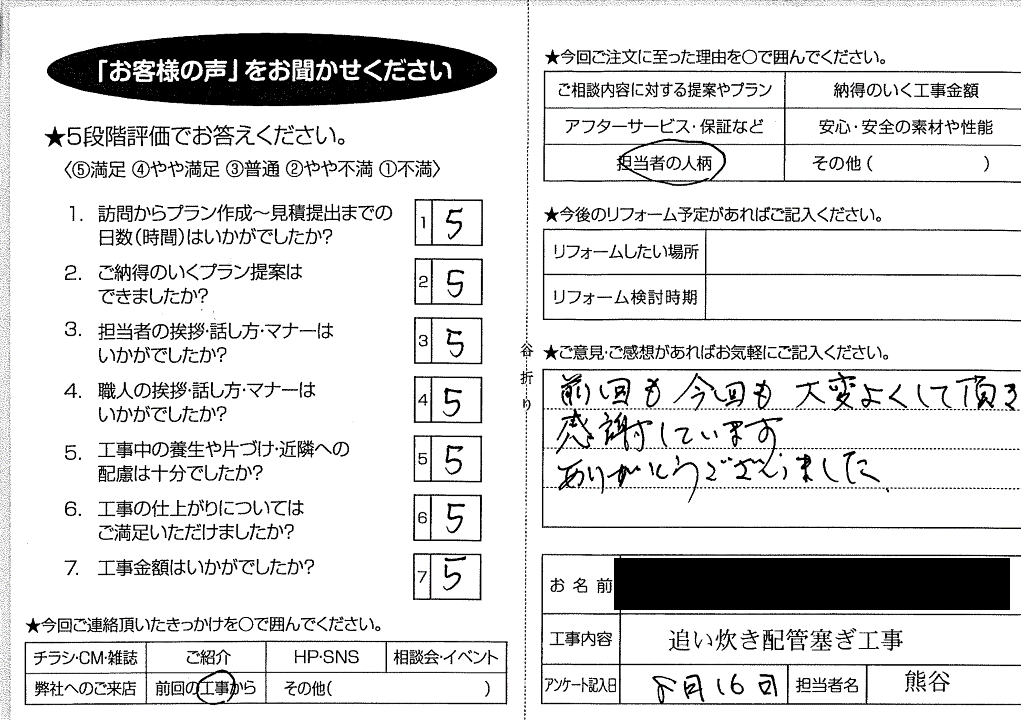 「お客様の声」をお聞かせください
★5段階評価でお答えください。
〈⑤満足 ④やや満足 ③普通 ②やや不満 ①不満〉
1. 訪問からプラン作成〜見積提出までの
日数(時間)はいかがでしたか?
1 5
2. ご納得のいくプラン提案は
できましたか?
2 5
3. 担当者の挨拶・話し方・マナーは
いかがでしたか?
3 5
4. 職人の挨拶・話し方・マナーは
いかがでしたか?
4 5
5. 工事中の養生や片づけ・近隣への
配慮は十分でしたか?
5 5
6. 工事の仕上がりについては
ご満足いただけましたか?
6 5
7. 工事金額はいかがでしたか?
7 5
★今回ご連絡頂いたきっかけを〇で囲んでください。
チラシ・CM・雑誌 ご紹介 HP・SNS 相談会・イベント
弊社へのご来店 前回の工事から その他( )
谷折り
★今回ご注文に至った理由を〇で囲んでください。
ご相談内容に対する提案やプラン 納得のいく工事金額
アフターサービス・保証など 安心・安全の素材や性能
担当者の人柄 その他( )
★今後のリフォーム予定があればご記入ください。
リフォームしたい場所
リフォーム検討時期
★ご意見・ご感想があればお気軽にご記入ください。
前回も今回も大変よくして頂き
感謝しています
ありがとうございました.
お名前
工事内容 追い炊き配管塞ぎ工事
アンケート記入日 8月16日 担当者名 熊谷